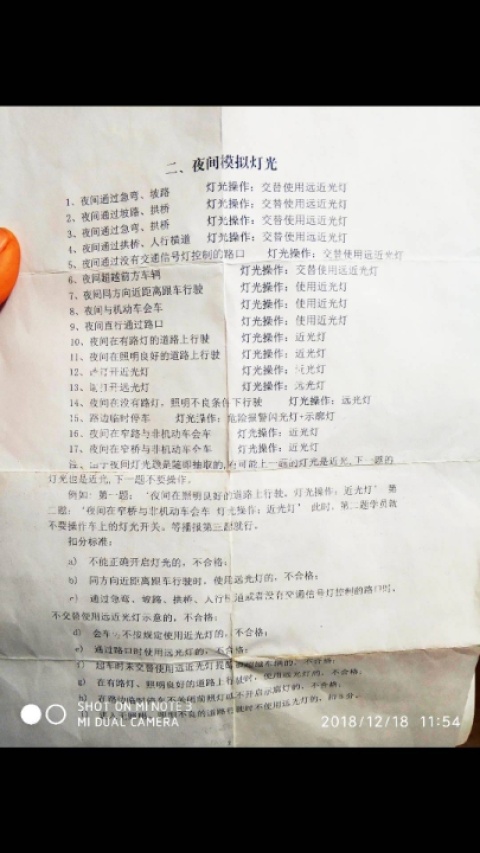 二、夜间模拟灯光
1、夜间通过急弯、坡路 灯光操作：交替使用远近光灯
2、夜间通过坡路、拱桥 灯光操作：交替使用远近光灯
3、夜间通过急弯、拱桥 灯光操作：交替使用远近光灯
4、夜间通过拱桥、人行横道 灯光操作：交替使用远近光灯
5、夜间通过没有交通信号灯控制的路口 灯光操作：交替使用远近光灯
6、夜间超越前方车辆 灯光操作：交替使用远近光灯
7、夜间同方向近距离跟车行驶 灯光操作：使用近光灯
8、夜间与机动车会车 灯光操作：使用近光灯
9、夜间直行通过路口 灯光操作：使用近光灯
10、夜间在有路灯的道路上行驶 灯光操作：近光灯
11、夜间在照明良好的道路上行驶 灯光操作：近光灯
12、请打开近光灯 灯光操作：近光灯
13、请打开远光灯 灯光操作：远光灯
14、夜间在没有路灯，照明不良条件下行驶 灯光操作：远光灯
15、路边临时停车 灯光操作：危险报警闪光灯+示廓灯
16、夜间在窄路与非机动车会车 灯光操作：近光灯
17、夜间在窄桥与非机动车会车 灯光操作：近光灯
夜间灯光题是随即抽取的,有可能上一题的灯光是近光,下一题的
灯光也是近光,下一题不要操作。
例如：第一题：‘夜间在照明良好的道路上行驶，灯光操作：近光灯’ 第
二题：‘夜间在窄桥与非机动车会车 灯光操作：近光灯’ 此时，第二题学员就
不要操作车上的灯光开关。等播报第三题就行。
扣分标准：
a) 不能正确开启灯光的，不合格；
b) 同方向近距离跟车行驶时，使用远光灯的，不合格；
c) 通过急弯、坡路、拱桥、人行横道或者没有交通信号灯控制的路口时，
不交替使用远近光灯示意的，不合格；
d) 会车时不按规定使用近光灯的，不合格；
e) 通过路口时使用远光灯的，不合格；
f) 超车时未交替使用远近光灯提醒被超越车辆的，不合格；
g) 在有路灯、照明良好的道路上行驶时，使用远光灯的，不合格；
h) 在路边临时停车不关闭前照灯或不开启示廓灯的，不合格；
照明不良的道路行驶时不使用远光灯的，
SHOT ON MI NOTE 3
MI DUAL CAMERA
2018/12/18 11:54